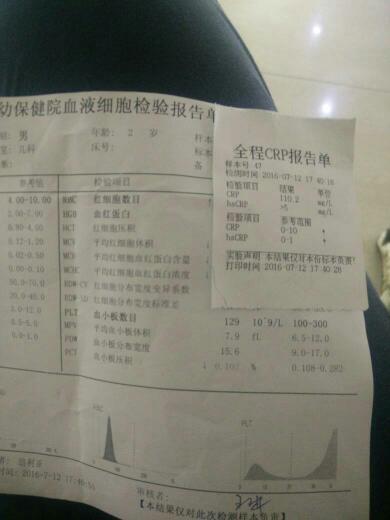 幼保健院血液细胞检验报告单
男 年龄: 2 岁 样本
儿科 床号:
备
参考值 检验项目
4.00-10.00 RBC 红细胞数目
2.00-7.00 HGB 血红蛋白
0.80-4.00 HCT 红细胞压积
0.12-1.20 MCV 平均红细胞体积
0.02-0.50 MCH 平均红细胞血红蛋白含量
0.00-0.10 MCHC 平均红细胞血红蛋白浓度
50.0-70.0 RDW-CV 红细胞分布宽度变异系数
20.0-40.0 RDW-SD 红细胞分布宽度标准差
3.0-12.0 PLT 血小板数目 129 10^9/L 100-300
0.5-5.0 MPV 平均血小板体积 7.9 fL 6.5-12.0
0.0-1.0 PDW 血小板分布宽度 15.6 9.0-17.0
PCT 血小板压积 ↓ 0.102 % 0.108-0.282
全程CRP报告单
样本号 47
检测时间 2016-07-12 17 40:16
检验项目 结果 单位
CRP 110.2 mg/L
hsCRP >5 mg/L
检验项目 参考范围
CRP 0-10
hsCRP 0-1
实验声明 本结果仅对本份标本负责!
打印时间 2016-07-12 17 40 28
PLT
时间: 2016-7-12 17:46:55
审核者:
【本结果仅对此次检测样本负责】